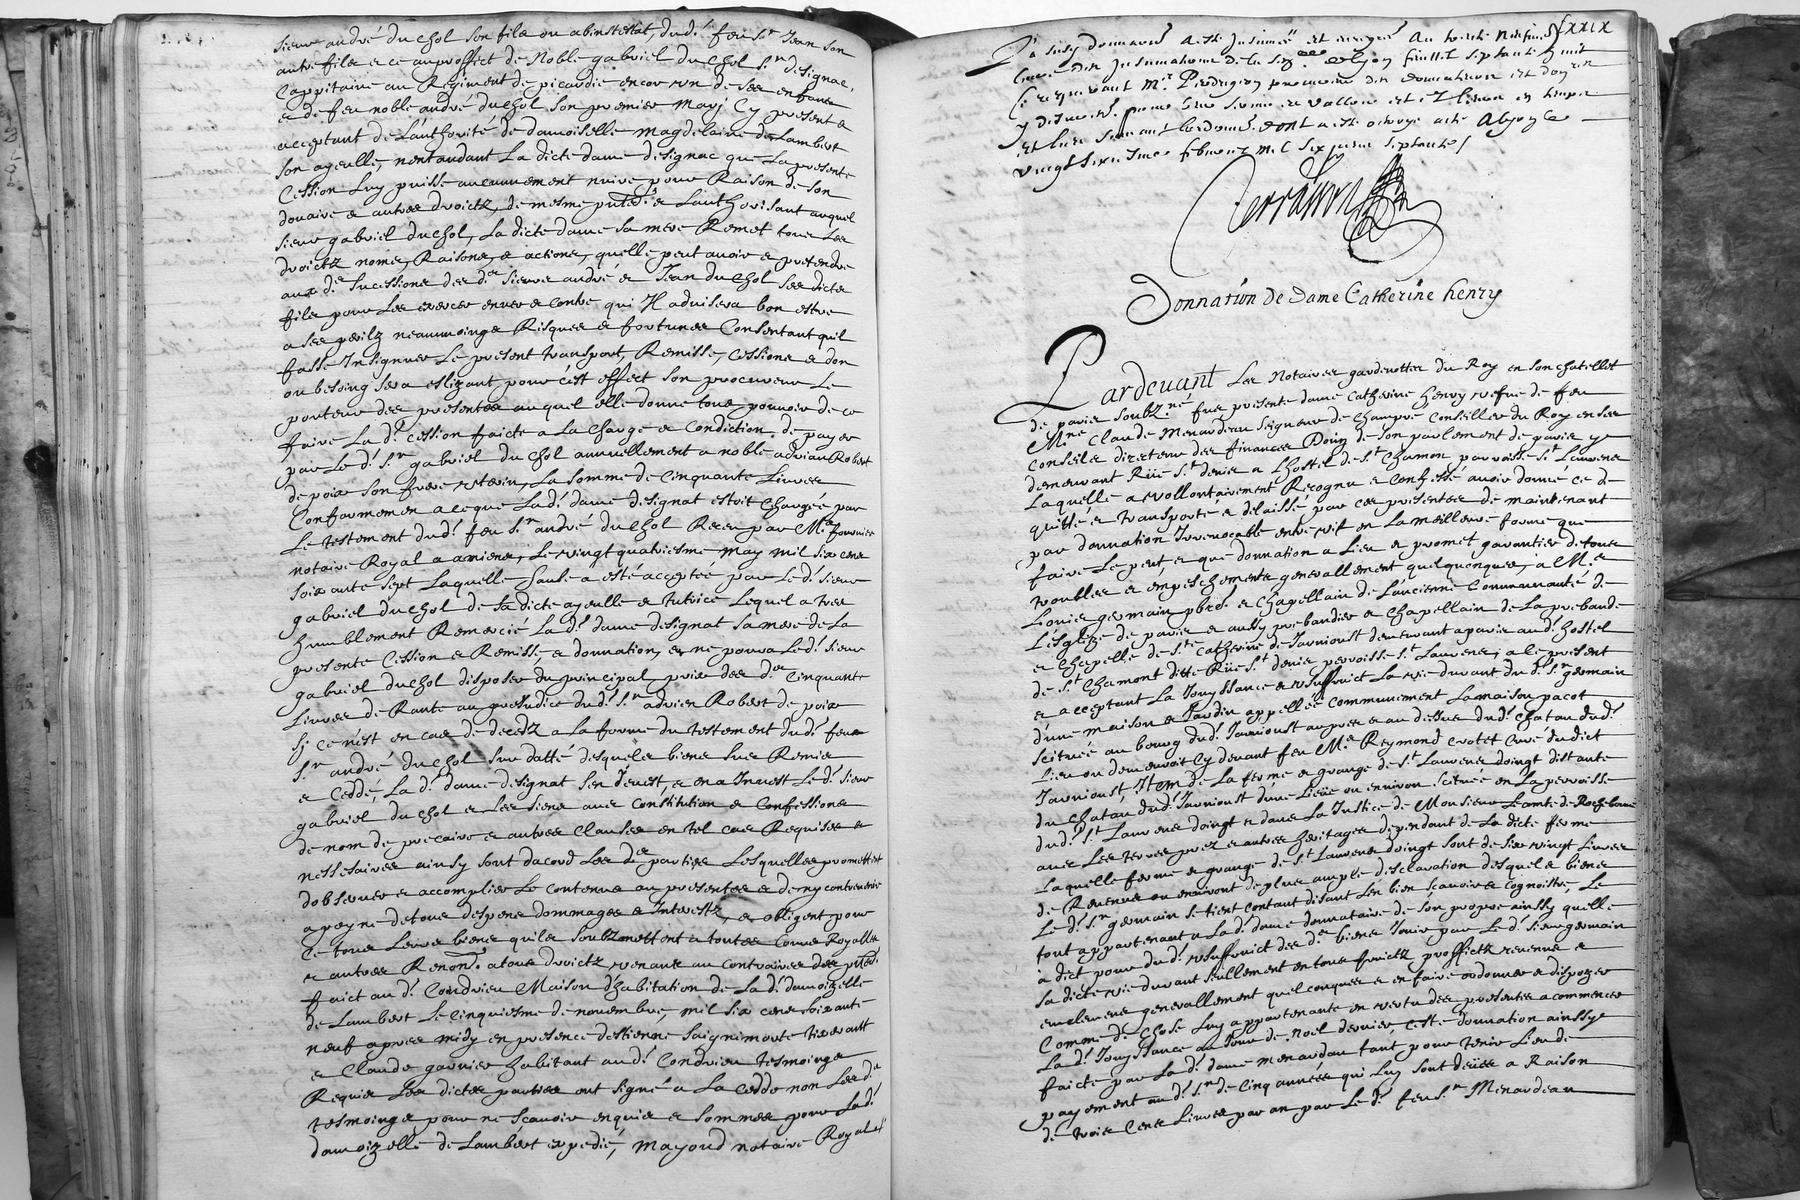 sieur andré du chol son filz ou abinstestat, dud.t feu s.r Jean son
autre filz e ce au proffict de Noble gabriel du Chol s.r designac,
Cappitaine au Regiment de picardie encor un de ses enfans
e de feu noble andré duchol son premier mary Cy present e
acceptant de l'authorité de damoiselle magdelaine de Lambert
son ayeulle, nentandant La dicte dame designac que La presente
Cession Luy puisse aucunement nuire pour Raison de son
douaire e autres droictz, de mesme e Lauthorisant auquel
sieur gabriel duchol, La dicte dame sa mere Remet tous Les
droictz noms, Raisons, e actions, quelle peut avoir e pretendre
aux d.es sucessions des d.es sieurs andré e Jean du Chol ses dictz
filz pour Les exercer envers e contre qui Il advisera bon estre
a ses perilz neaumoings Risques e fortunes Consentant quil
fasse Insignuer Le present transport, Remisse, cessions e don
ou besoing sera eslizant pour cest effect son procureur Le
porteur des presentes auquel elle donne tous pouvoir de ce
faire La d.t Cession faicte a La charge e Condiction de payer
par Le d.t s.r gabriel du chol annuellement a noble adrian Robert
de poix son frere uterin, La somme de Cinquante Livres
Conformemen a ce que Lad.t dame designat estoit Chargée par
Le testement dud.t feu s.r andré du Chol Receu par M.e fournier
notaire Royal a amiens, Le vingt quatriesme may mil six cens
soixante sept Laquelle Saulz a esté acceptée par Led.t sieur
gabriel duchol de sa dicte ayeulle e tutrice Lequel a tres
humblement Remercié La d.t dame designat sa mere de La
presente Cession e Remisse e donnation, e ne pourra Led.t sieur
gabriel duchol disposer du principal prix des d.es Cinquante
Livres de Rante au prejudice dud.t s.r adrien Robert de poix
sy ce n'est en cas de decedz a La forme du testement dud.t feu
s.r andré du chol sus datté desquels biens sus Remis
e Ceddé, La d.t dame designat sen devest, e en a Invest Le d.t sieur
gabriel du chol e Les siens avec Constitution e Confessions
de nom de precaire e autres Clauses en tel cas Requises e
nessesaires ainsy sont dacord Les d.es parties Lesquelles promettent
dobserver e accomplier Le contenu au presentes e de ny contrevenir
a peyne de tous despens dommages e Interestz, e obligent pour
Ce tous Leurs biens quils soubzmettent a toutes Cours Royalles
e autres Renon.t a tous droictz venant au contraires des
faict au d.t Condrieu Maison dhabitation de La d.t damoizelle
de Lambert Le Cinquiesme de novembre, mil six cens soixante
neuf apres midy en presence destienne saignimorte tisserant
e Claude garnier habitant aud.t Condrieu tesmoings
Requis Les dictes parties ont signé a La cedde non Les d.es
tesmoings pour ne scavoir enquis e sommes pour Lad.t
damoizelle de Lambert expedié, mayoud notaire Royal
lxxix
susd donnaon a esté Insinuée et registrée au trente neufies
livre des Insinuations de la sen.ee de lyon feuillet septante huit
Ce requerant M.e Perdrigion procureur des donnateur et don.re
y desnom.és pour leur servir et valloir et tenir en temps
et lieu suivant l'ordonn.e dont a esté octroyé acte A Lyon le
vingt sixiesme febvrier mil six cens septante /
Terrasson
Donnation de Dame Catherine henry
Pardevant Les Notaires gardenottes du Roy en son chatellet
de paris soubz.né fut presente dame Catherine henry vefve de feu
M.re Claude Menardeau seigneur de Champré Conseiller du Roy en ses
Conseils directeur des finances Doien de son parlement de paris y
demeurant Rüe s.t denis a Lhostel de s.t Chamon parroisse s.t Laurens
Laquelle a vollontairement Recognu e Confessé avoir donné ce de
quitté e transporté e délaissé par ces presentes de maintenant
par donnation Irrevocable entre vifz en La meilleure forme que
faire Le peut e que donnation a Lieu e promet garantier de tous
troubles e empeschements generallement quelquonques, a M.e
Louis germain pbre e Chapellain de Lancienne Communauté de
Lesglize de paris e aussy prebandier e Chapellain de La prebande
e chapelle de s.te Catherine de Jarnioust demeurant a paris aud.t hostel
de s.t Chamont ditte Rüe s.t denis parroisse s.t Laurens, a ce present
e acceptant La Jouyssance e usuffruict La vie durant du d.t s.r germain
d'une maison e Jardin appellés Communement La maison pacot
scituée au bourg dud.t Jarnioust aupres e au dessus dud.t chatau dud.t
Lieu ou demeuroit Cy devant feu M.e Reymond crotet Curé dudict
Jarnioust, Item de La ferme e grange de s.t Laurens doingt distante
du chatau dud.t Jarnioust d'une Lieüe ou environ scituée en La parroisse
dud.t s.t Laurens doingt e dans La Justice de Monsieur Le comte de Rochebonne
avec Les terres prez e autres heritages dependant de La dicte ferme
Laquelle ferme e grange de s.t Laurens doingt sont de six vingt Livres
de Revenus ou environt de plus ample desclaration desquels biens
Le d.t s.r germain se tient contant disant Les bien scavoir e cognoistre, Le
tout appartenant a La d.t dame donnataire de son propre ainssy quelle
à dict pour dud.t usuffruict des d.es biens Jouir par Le d.t sieur germain
sa dicte vie durant seullement en tous fruictz proffictz revenus e
emolumens generallement quelconques e en faire ordonner e dispozer
Comme de Chose Luy appartenante en vertu des presentes a commencer
La d.t Jouyssance au Jour de Noel dernier ceste donnation ainssy
faicte par La d.t dame menardeau tant pour tenir Lieu de
payement aud.t s.r de Cinq années qui Luy sont deües a Raison
de trois Cens Livres par an par Le d.t feu s.r Menardeau